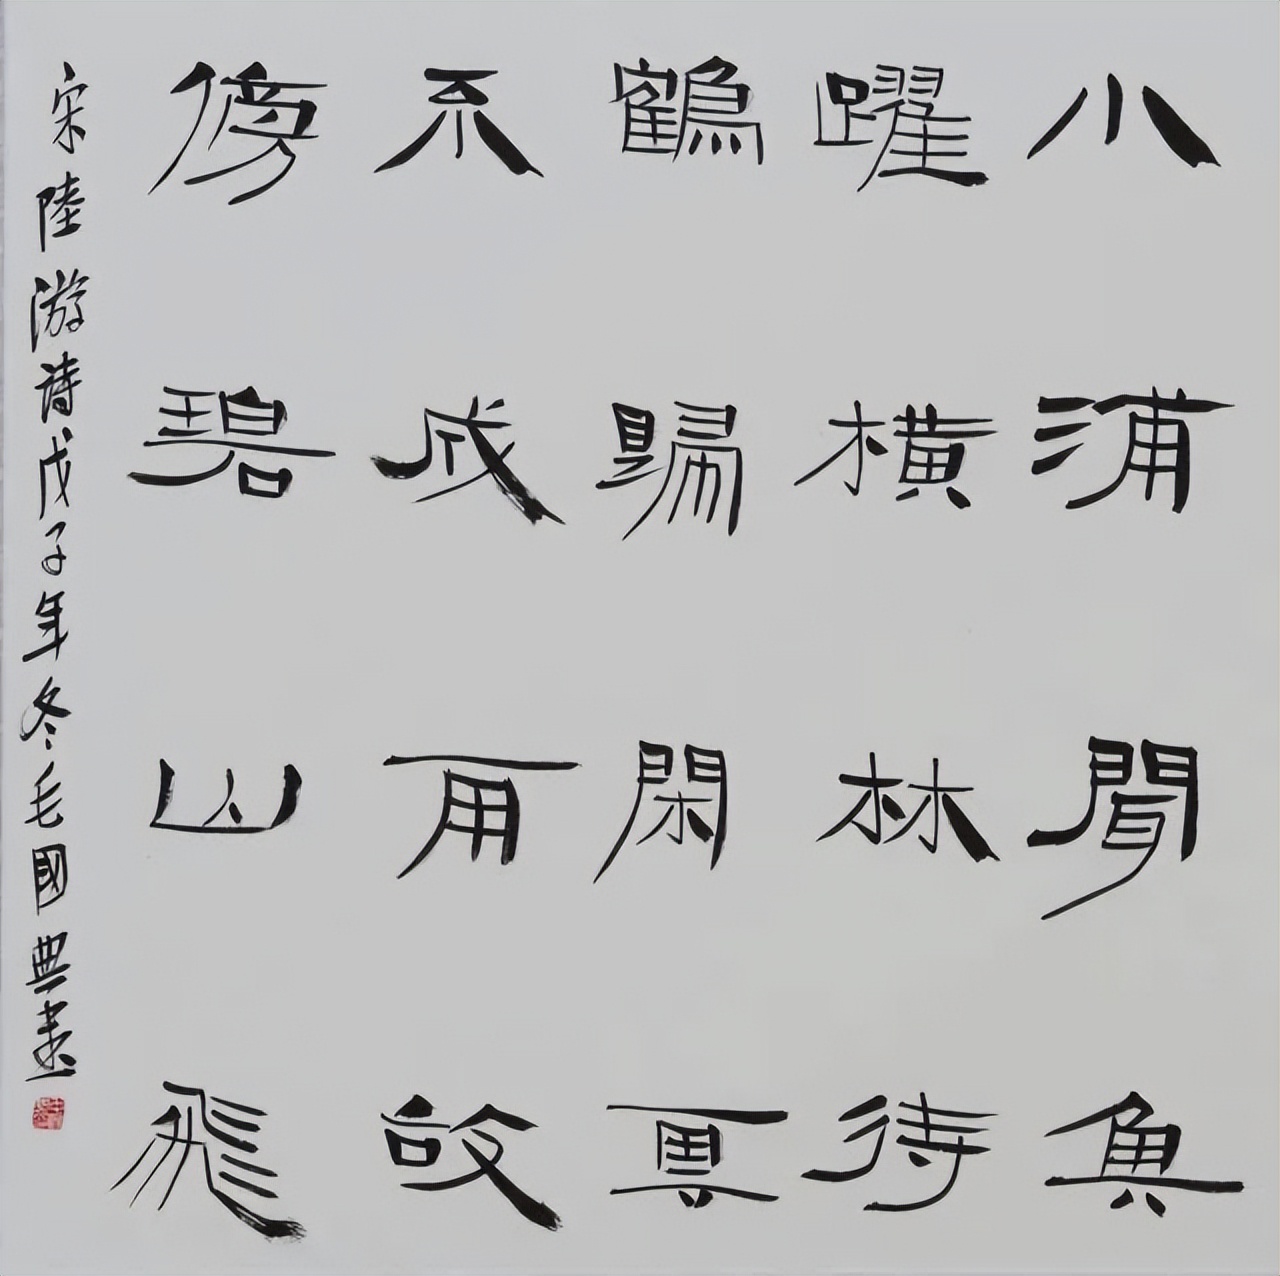 小浦聞魚
躍橫林待
鶴歸閑雲
不成雨故
傍碧山飛
宋陸游詩戊子年冬毛國典書